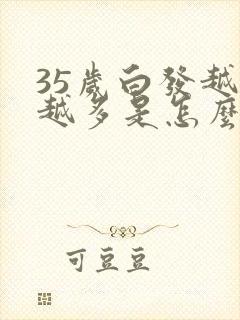 35歲白發越
越多是怎麼
可豆豆